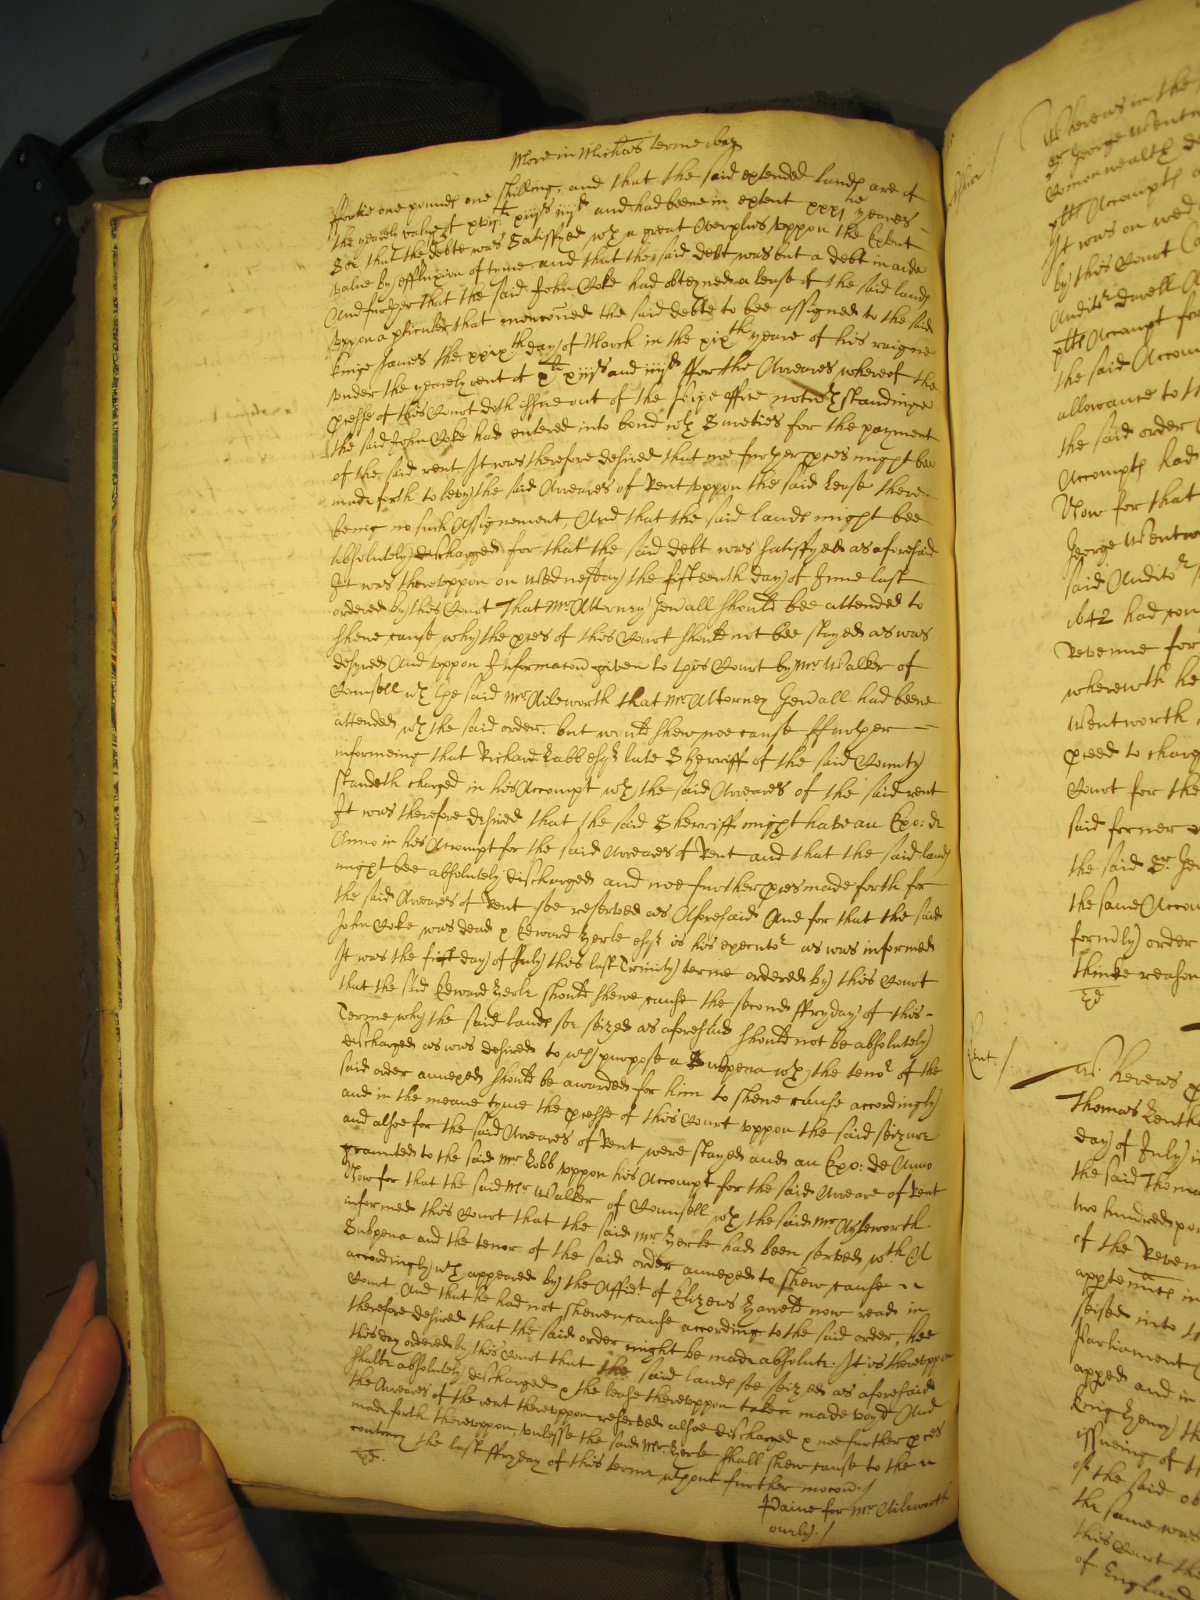 More in Michas terme 1649
ffortie one pounds one shilling, and that the said extended lands are of
the yearely value of xiijs iiijd and had beene in extent xxxj yeares
Soe that the debte was Satisfyed wth a great Overplus vppon the Extent
value by effluxion of tyme, and that the said debt was but a debt in aide
And further that the said John Coke had obteyned a lease of the said lands
vppon a pticuler that menconed the said debte to bee assigned to the said
kinge James the xxixth day of March in the xixth yeare of his raigne
vnder the yearely rent of xiijs and iiijd ffor the Arreares whereof the
presse of this Court doth issue out of the pipe office notwthstandinge
the said John Coke had entered into bond wth Sureties for the payment
of the said rent It was therefore desired that noe further pces might bee
made forth to levy the said Arreares of Rent vppon the said Lease there
being no such Assignement, And that the said lands might bee
absolutely discharged for that the said debt was satisfyed as aforesaid
It was therevppon on Wednesday the fifteenth day of June last
ordered by this Court That Mr Attorney Genall should bee attended to
shewe cause why the pces of this Court should not bee stayed as was
desyred And vppon Informacon given to this Court by Mr Walker of
Counsell wth the said Mr Aileworth that Mr Attorney Genall had beene
attended wth the said order, but would shew noe cause ffurther
informeing that Richard Babb esqr late Sherriff of the said County
standeth charged in his Accompt wth the said Arreares of the said rent
It was therefore desired that the said Sherriff might have an Exo: de
Anno in his Accompt for the said Arreares of Rent and that the said lands
might bee absolutely discharged and noe further pces made forth for
the said Arreares of Rent soe reserved as Aforesaid And for that the said
John Coke was dead & Edward Herle esqr is his executor as was informed
It was the first day of July this last Trinity terme ordered by this Court
that the said Edward Herle should shewe cause the second ffryday of this
Terme why the said lands soe seized as aforesaid should not be absolutely
discharged as was desired to wch purpose a Subpena wth the tenor of the
said order annexed should be awarded for him to shewe cause accordingly
and in the meane tyme the presse of this Court vppon the said seizure
and alsoe for the said Arreares of Rent were stayed and an Exo: de Anno
graunted to the said Mr Bobb vppon his Accompt for the said Arreare of Rent
Now for that the said Mr Walker of Counsell wth the said Mr Ayleworth
informed this Court that the said Mr Herle had been served wth A
Subpena and the tenor of the said order annexed to shew cause
accordingly wch appeared by the Affidt of now read in
Court And that he had not shewen cause according to the said order, hee
therefore desired that the said order might be made absolute. It is therevppon
this day ordered by this Court that the said lands soe seized as aforesaid
shalbe absolutely discharged & the lease therevppon taken made voyd And
the Arreares of the rent therevppon reserved alsoe discharged & noe further pces
made forth therevppon, vnlesse the said Mr Herle shall shew cause to the
contrary the last ffryday of this terme wthout further mocon./
Paine for Mr Ailworth
only./
Whereas in the
Sr George Wentw
Comonwealth
Accompts
It was on wed
by this Court
Auditor Darell
Accompt for
the said Accom
allowance to th
the said order
Accompts had
Now for that
George Wentwo
said Auditor
1642 had con
Revenue for
wherewth he
Wentworth
pceed to charg
Court for the
said former
the said Sr Geo
the same Accou
formerly order
thinke reason
Kent./
Whereas
Thomas
day of July i
the said Thoma
two hundred po
of the Reven
in
seised into
Parliament
apped and in
king Henry th
issueing of
of the said
the same was
this Court the
of England